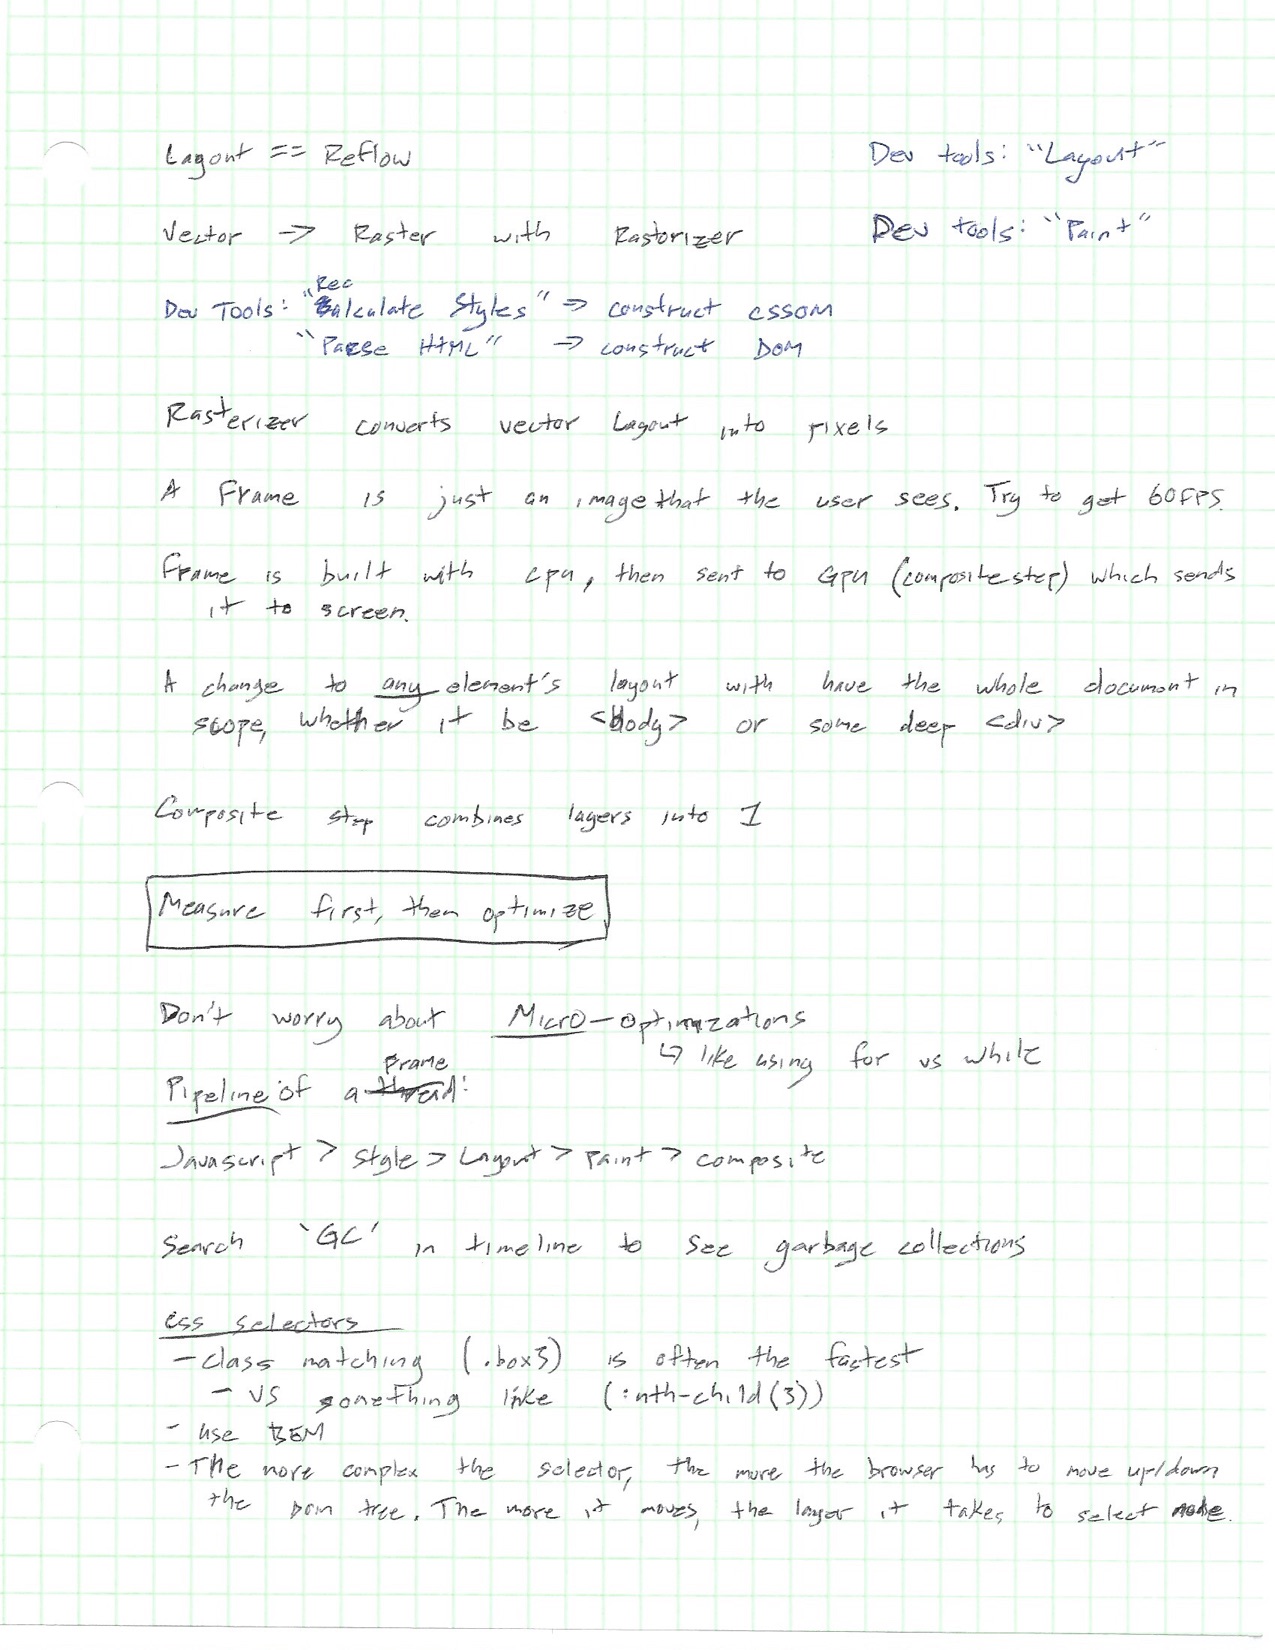 Layout == Reflow Dev tools: "Layout"
Vector -> Raster with Rastorizer Dev tools: "Paint"
Dev Tools: "Recalculate Styles" => construct CSSOM
"Parse HTML" -> construct DOM
Rasterizer converts vector Layout into pixels
A Frame is just an image that the user sees. Try to get 60FPS.
Frame is built with cpu, then sent to GPU (composite step) which sends
it to screen.
A change to any element's layout with have the whole document in
scope, whether it be <body> or some deep <div>
Composite step combines layers into 1
Measure first, then optimize
Don't worry about Micro-optimizations
↳ like using for vs while
Pipeline of a Frame:
Javascript > Style > Layout > Paint > composite
Search 'GC' in timeline to see garbage collections
CSS selectors
- class matching (.box3) is often the fastest
- vs something like (:nth-child(3))
- use BEM
- The more complex the selector, the more the browser has to move up/down
the DOM tree. The more it moves, the longer it takes to select node.